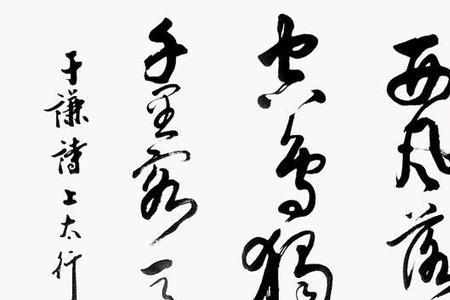 西風落
容鳥獨
千里客
于謙詩上太行